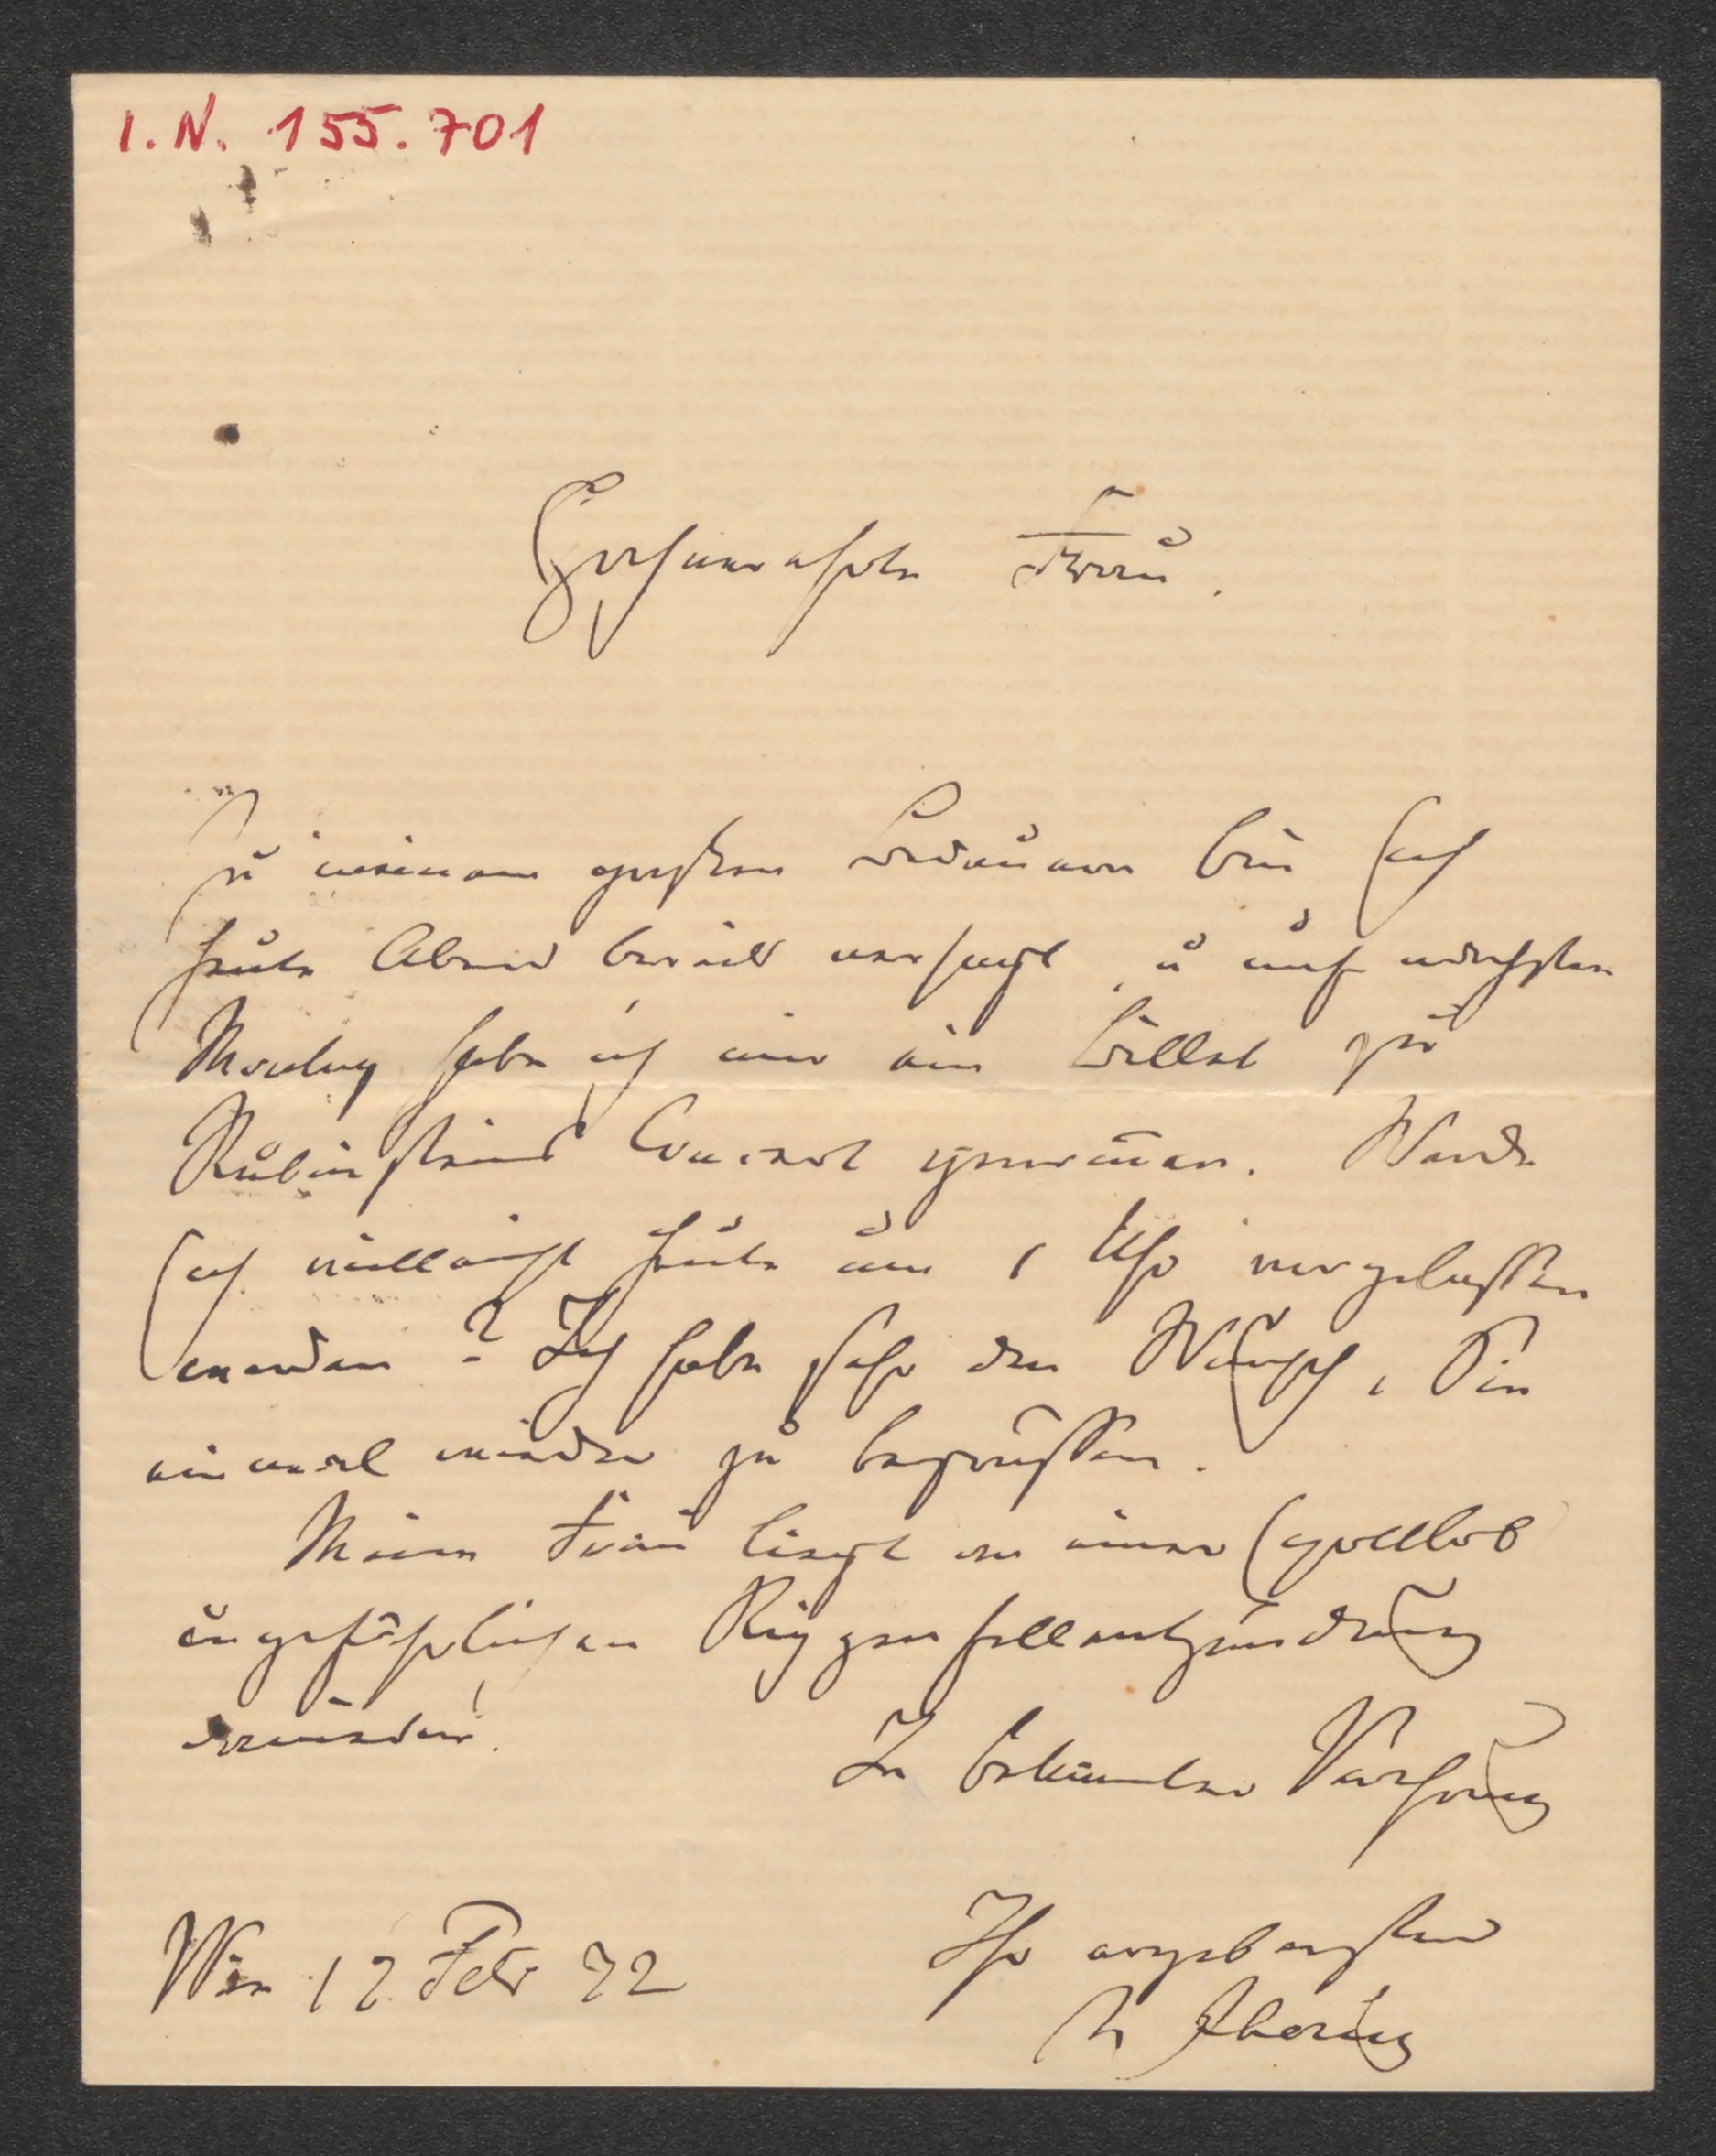 I.N. 155.701
Hochverehrte Frau.
Zu meinem großen Bedauern bin ich
heute Abend bereits versagt, u auf nächsten
Montag habe ich mir ein Billet zu
Rubinsteins Concert genom̅en. Werde
ich vielleicht heute um 1 Uhr vorgelassen
werden? Ich habe sehr den Wunsch, Sie
einmal wieder zu begrüssen.
Meine Frau liegt an einer (gottlob
ungefährlichen Rippenfellentzündung
darnieder.
In bekannter Verehrung
Ihr ergebenster
Wien 17 Febr 72
R Jhering